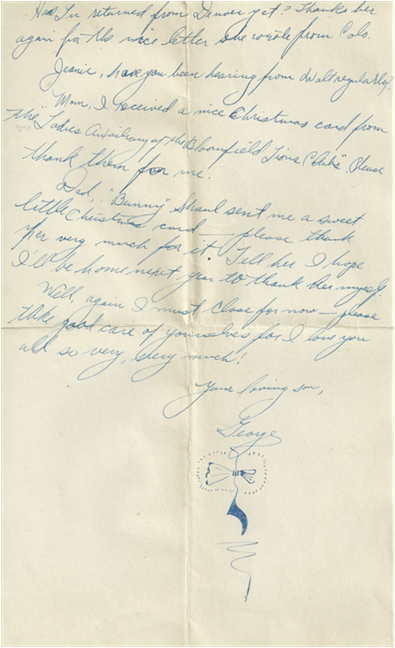 Has Lu returned from Denver yet? Thanks her
again for the nice letter she wrote from Colo.
Jeanie, have you been hearing from Walt regularly?
Mom, I received a nice Christmas card from
the "Ladies Auxiliary of the Bloomfield Lions Club". Please
thank them for me.
Dad, "Bunny" Shaul sent me a sweet
little Christmas card — please thank
her very much for it. Tell her I hope
I'll be home next year to thank her myself.
Well, again I must close for now — please
take good care of yourselves for I love you
all so very, very much!
Your loving son,
George